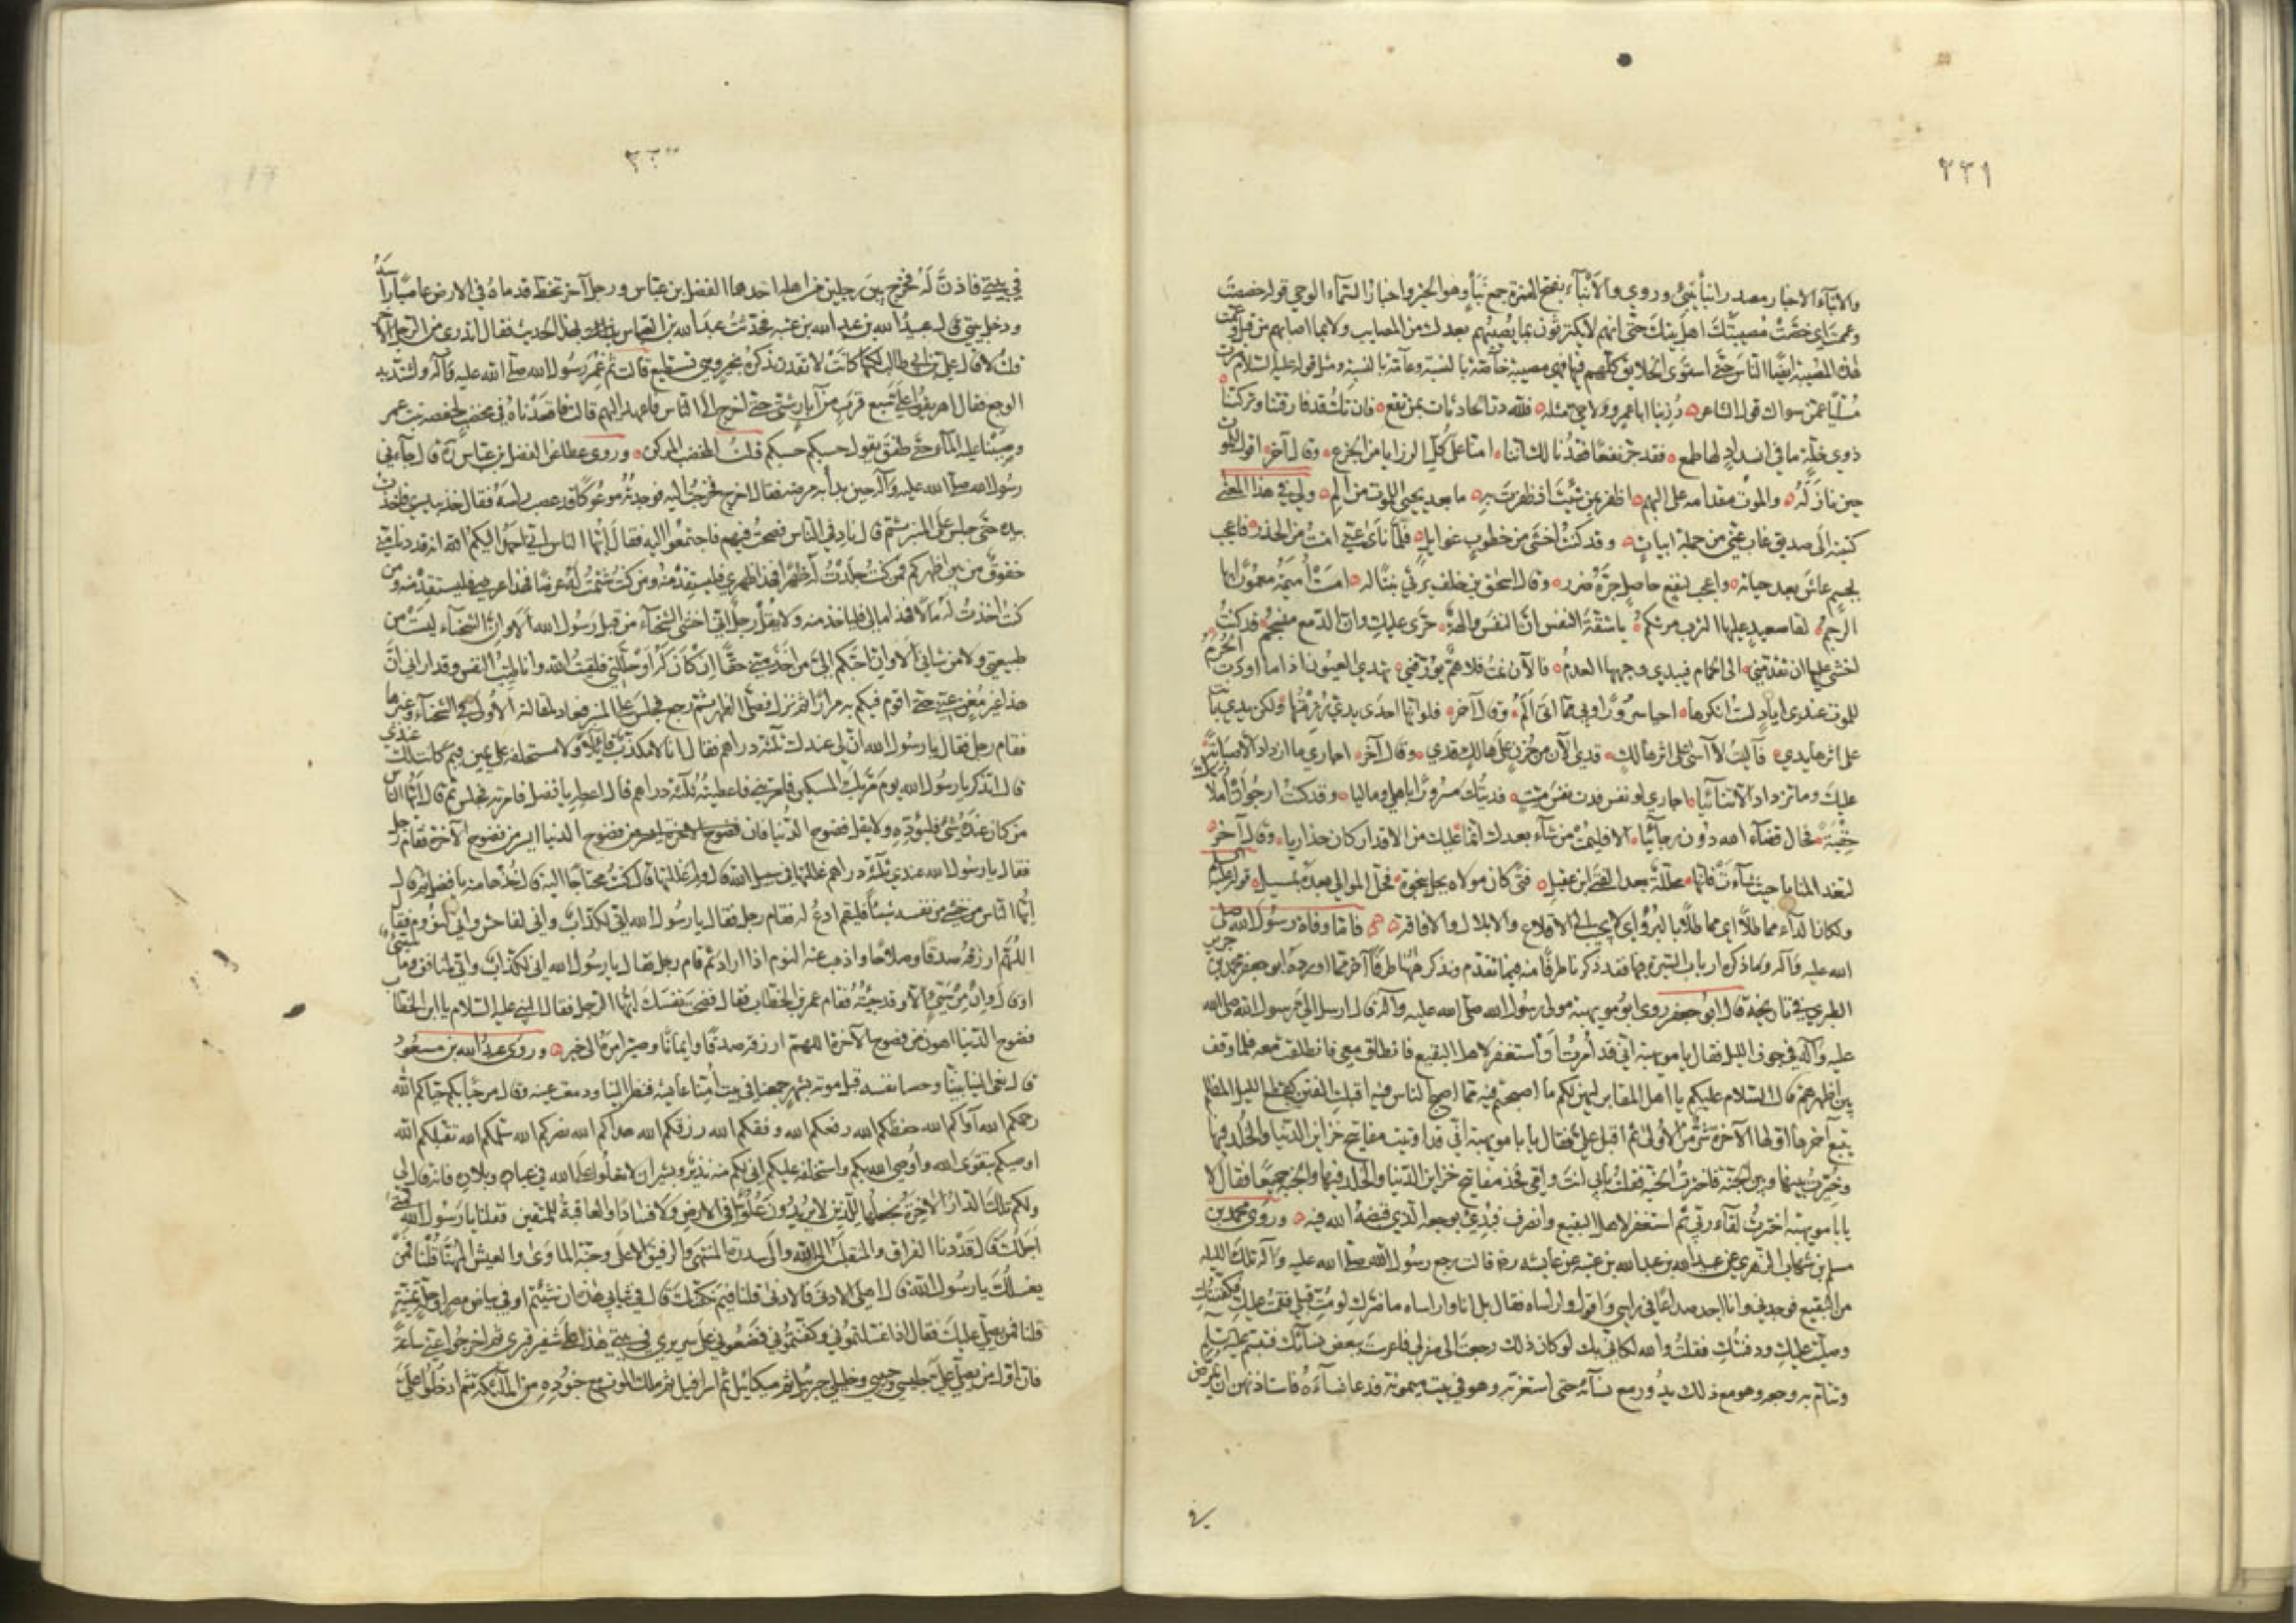 ٢٣١
والانباء الاخبار مصدر انبأ ينبئ وروي والأنباء بفتح الهمزة جمع نبأ وهو الخبر واخبار السماء الوحي قوله خصصت
وعممت اي خصت مصيبتك اهل بيتك حتى انهم لا يكترثون بما يصيبهم بعدك من المصايب ولا بما اصابهم من قبل وعمت
هذه المصيبة ايضا الناس حتى استوى الخلايق كلهم فيها فهي مصيبة خاصة بالنسبة وعامة بالنسبة ومثل قوله عليه السلام صرت
مسليا عمن سواك قول الشاعر رزينا ابا عمرو ولا حي مثله فلله در الحادثات بمن تقع فان تك قد فارقتنا وتركتنا
ذوي خلة ما في انسداد لها طمع فقد جر نفعا فقدنا لك اننا امنا على كل الرزايا من الجزع وقال آخر اقول للموت
حين نازله والموت مقدامه على البهم اظفر بمن شئت اذ ظفرت به ما بعد يحيى للموت من الم ولي في هذا المعنى
كتبته الى صديق غاب عني من جملة ابيات وقد كنت اخشى من خطوب غوايل فلما نأى عني امنت من الحذر فاعجب
لجسم عاش بعد حياته واعجب لنفع حاصل جره ضرر وقال اسحق بن خلف يرثي بنتا له امست اميمة معمورا بها
الرجم لقا صعيد عليها الترب مرتكم يا شقة النفس ان النفس والهة حرى عليك وان الدمع منسجم قد كنت
اخشى عليها ان تقدمني الى الحمام فيبدي وجهها العدم فالآن نمت فلا هم يؤرقني تهدى العيون اذا ما اودت الحرم
للموت عندي اياد لست انكرها احيا سرورا وبي مما اتى الم وقال آخر فلو انها احدى يدي رزئتها ولكن يدي بانت
على اثرها يدي فآليت لا آسى على اثر هالك قدي الآن من حزن على هالك قدي وقال آخر اجاري ما ازداد الا صبابة
عليك وما تزداد الا تنائيا اجاري لو نفس فدت نفس ميت فديتك مسرورا باهلي وماليا وقد كنت ارجو ان املاك
حقبة فحال قضاء الله دون رجائيا الا فليمت من شاء بعدك انما عليك من الاقدار كان حذاريا وقال آخر
لتغد المنايا حيث شاءت فانها محللة بعد الفتى ابن عقيل فتى كان مولاه يحل بنجوة فحل الموالي بعده بمسيل قوله عليه السلام
ولكان الداء مماطلا اي مماطلا بالبرء اي لا يجيب الى الاقلاع والابلال والافاقة فاما وفاة رسول الله صلى
الله عليه وآله وما ذكره ارباب السيرة فيها فقد ذكرنا طرفا منه فيما تقدم ونذكر ههنا طرفا آخر مما اورده ابو جعفر محمد بن جرير
الطبري في تاريخه قال ابو جعفر روى ابو مويهبة مولى رسول الله صلى الله عليه وآله قال ارسل الي رسول الله صلى الله
عليه وآله في جوف الليل فقال يا مويهبة اني قد امرت ان استغفر لاهل البقيع فانطلق معي فانطلقت معه فلما وقف
بين اظهرهم قال السلام عليكم يا اهل المقابر ليهن لكم ما اصبحتم فيه مما اصبح الناس فيه اقبلت الفتن كقطع الليل المظلم
يتبع آخرها اولها الآخرة شر من الاولى ثم اقبل علي فقال يا با مويهبة اني قد اوتيت مفاتيح خزاين الدنيا والخلد فيها
وخيرت بينها وبين الجنة فاخترت الجنة فقلت بابي انت وامي فخذ مفاتيح خزاين الدنيا والخلد فيها والجنة جميعا فقال لا
يا با مويهبة اخترت لقاء ربي ثم استغفر لاهل البقيع وانصرف فبدئ بوجعه الذي قبضه الله فيه وروى محمد بن
مسلم بن شهاب الزهري عن عبيد الله بن عبد الله بن عتبة عن عايشة رضه قالت رجع رسول الله صلى الله عليه وآله تلك الليلة
من البقيع فوجدني وانا اجد صداعا في راسي واقول وارأساه فقال بل انا وارأساه ما ضرك لو مت قبلي فقمت عليك فكفنتك
وصليت عليك ودفنتك فقلت والله لكاني بك لو كان ذلك رجعت الى منزلي فاعرست ببعض نسائك فتبسم عليه السلام
وتتام به وجعه وهو مع ذلك يدور مع نسائه حتى استعز به وهو في بيت ميمونة فدعا نساءه فاستاذنهن ان يمرض
في
٢٣٠
في بيتي فاذن له فخرج بين رجلين من اهله احدهما الفضل بن عباس ورجل آخر تخط قدماه في الارض عاصبا رأسه
ودخل بيتي قال عبيد الله بن عبد الله بن عتبة فحدثت عبد الله بن العباس بهذا الحديث فقال اتدري من الرجل الآخر
قلت لا قال علي بن ابي طالب لكنها كانت لا تقدر ان تذكره بخير وهي تستطيع قالت ثم غمر رسول الله صلى الله عليه وآله واشتد به
الوجع فقال اهريقوا علي سبع قرب من آبار شتى حتى اخرج الى الناس فاعهد اليهم قالت فاقعدناه في مخضب لحفصة بنت عمر
وصببنا عليه الماء حتى طفق يقول حسبكم حسبكم قلت المخضب المركن وروى عطا عن الفضل بن عباس ره قال جاءني
رسول الله صلى الله عليه وآله حين بدأ به مرضه فقال اخرج فخرجت اليه فوجدته موعوكا قد عصب رأسه فقال خذ بيدي فاخذت
بيده حتى جلس على المنبر ثم قال ناد في الناس فصحت فيهم فاجتمعوا اليه فقال ايها الناس اني احمد اليكم الله انه قد دنا مني
حقوق من بين اظهركم فمن كنت جلدت له ظهرا فهذا ظهري فليستقد منه ومن كنت شتمت له عرضا فهذا عرضي فليستقد منه ومن
كنت اخذت له مالا فهذا مالي فلياخذ منه ولا يقل رجل اني اخشى الشحناء من قبل رسول الله الا وان الشحناء ليست من
طبيعتي ولا من شاني الا وان احبكم الي من اخذ مني حقا ان كان له او حللني فلقيت الله وانا طيب النفس وقد اراني ان
هذا غير مغن عني حتى اقوم فيكم به مرارا ثم نزل فصلى الظهر ثم رجع فجلس على المنبر فعاد لمقالته الاولى في الشحناء وغيرها
فقام رجل فقال يا رسول الله ان لي عندك ثلثة دراهم فقال انا لا نكذب قايلا ولا نستحلفه على يمين فيم كانت لك عندي
قال اتذكر يا رسول الله يوم مر بك المسكين فامرتني فاعطيته ثلثة دراهم قال اعطه يا فضل فامرته فجلس ثم قال ايها الناس
من كان عنده شيء فليؤده ولا يقل فضوح الدنيا فان فضوح الدنيا ايسر من فضوح الآخرة فقام رجل
فقال يا رسول الله عندي ثلثة دراهم غللتها في سبيل الله قال ولم غللتها قال كنت محتاجا اليها قال خذها منه يا فضل ثم قال
ايها الناس من خشي من نفسه شيئا فليقم ادع له فقام رجل فقال يا رسول الله اني لكذاب واني لفاحش واني لنؤوم فقال
اللهم ارزقه صدقا وصلاحا واذهب عنه النوم اذا اراد ثم قام رجل فقال يا رسول الله اني لكذاب واني لمنافق وما من شيء
او قال وان من شيء الا وقد جنيته فقام عمر بن الخطاب فقال فضحت نفسك ايها الرجل فقال النبي عليه السلام يا ابن الخطاب
فضوح الدنيا اهون من فضوح الآخرة اللهم ارزقه صدقا وايمانا وصير امره الى خير وروى عبد الله بن مسعود
قال نعى الينا نبينا وحبيبنا نفسه قبل موته بشهر جمعنا في بيت امنا عايشة فنظر الينا ودمعت عينه وقال مرحبا بكم حياكم الله
رحمكم الله آواكم الله حفظكم الله رفعكم الله وفقكم الله رزقكم الله هداكم الله نصركم الله سلمكم الله تقبلكم الله
اوصيكم بتقوى الله واوصي الله بكم واستخلفه عليكم اني لكم منه نذير وبشير ان لا تعلوا على الله في عباده وبلاده فانه قال لي
ولكم تلك الدار الآخرة نجعلها للذين لا يريدون علوا في الارض ولا فسادا والعاقبة للمتقين فقلنا يا رسول الله فمتى
اجلك قال قد دنا الفراق والمنقلب الى الله والى سدرة المنتهى والرفيق الاعلى وجنة الماوى والعيش المهنا قلنا فمن
يغسلك يا رسول الله قال اهلي الادنى فالادنى قلنا ففيم نكفنك قال في ثيابي هذه ان شئتم او في بياض مصر او حلة يمنية
قلنا فمن يصلي عليك فقال اذا غسلتموني وكفنتموني فضعوني على سريري في بيتي هذا على شفير قبري ثم اخرجوا عني ساعة
فان اول من يصلي علي جليسي وحبيبي وخليلي جبرئيل ثم ميكائيل ثم اسرافيل ثم ملك الموت مع جنوده من الملئكة ثم ادخلوا علي